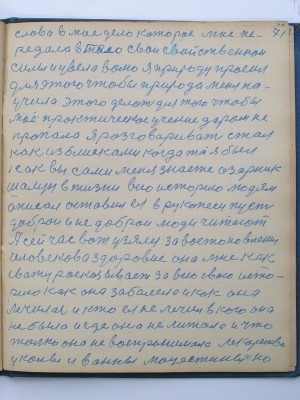 слова в мае дело которое мне пе-
редала в тело свои свойственной
силы и увела в мою я природу просил
для этого чтобы природа меня на-
учила этого делат для того чтобы
моё практическое учение даром не
пропала я розговаривать стал
как из близкими когда та я был
как вы сами меня знаете озарник
шалун в жизни всю историю людям
описал оставил ея в рукописи пусть
добрыи и не добрыи люди читают
Я сей час вот узялся за востоновления
человекова здаровие она мне как
свату росказывает за всю свою исто-
рию как она забалела и как она
личилас и кто ея не личил в кого она
не была и где она не литала и что
только она не воспринимала лекарства
уколы и ванны мацестинскии но